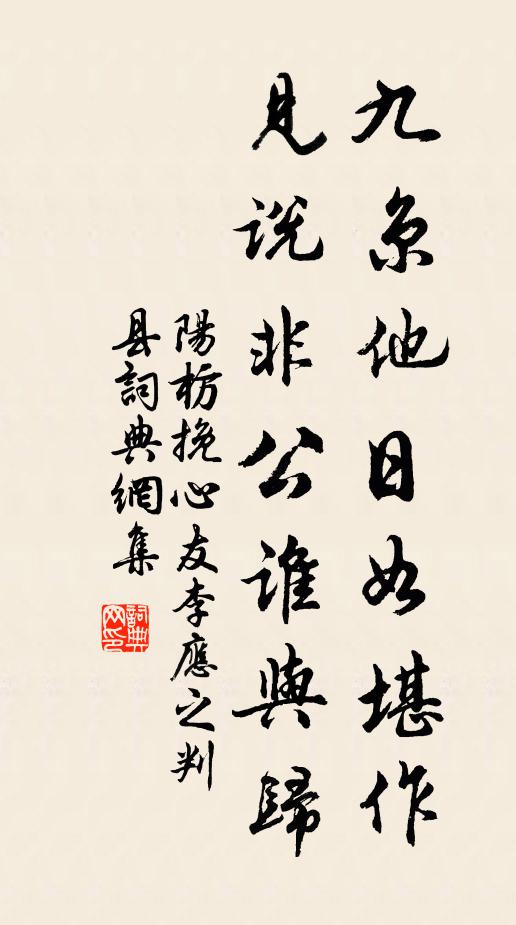 九京他日如堪作
見說非公誰與歸
陽枋挽心友李應之判
县詞典網集
詞典
网印